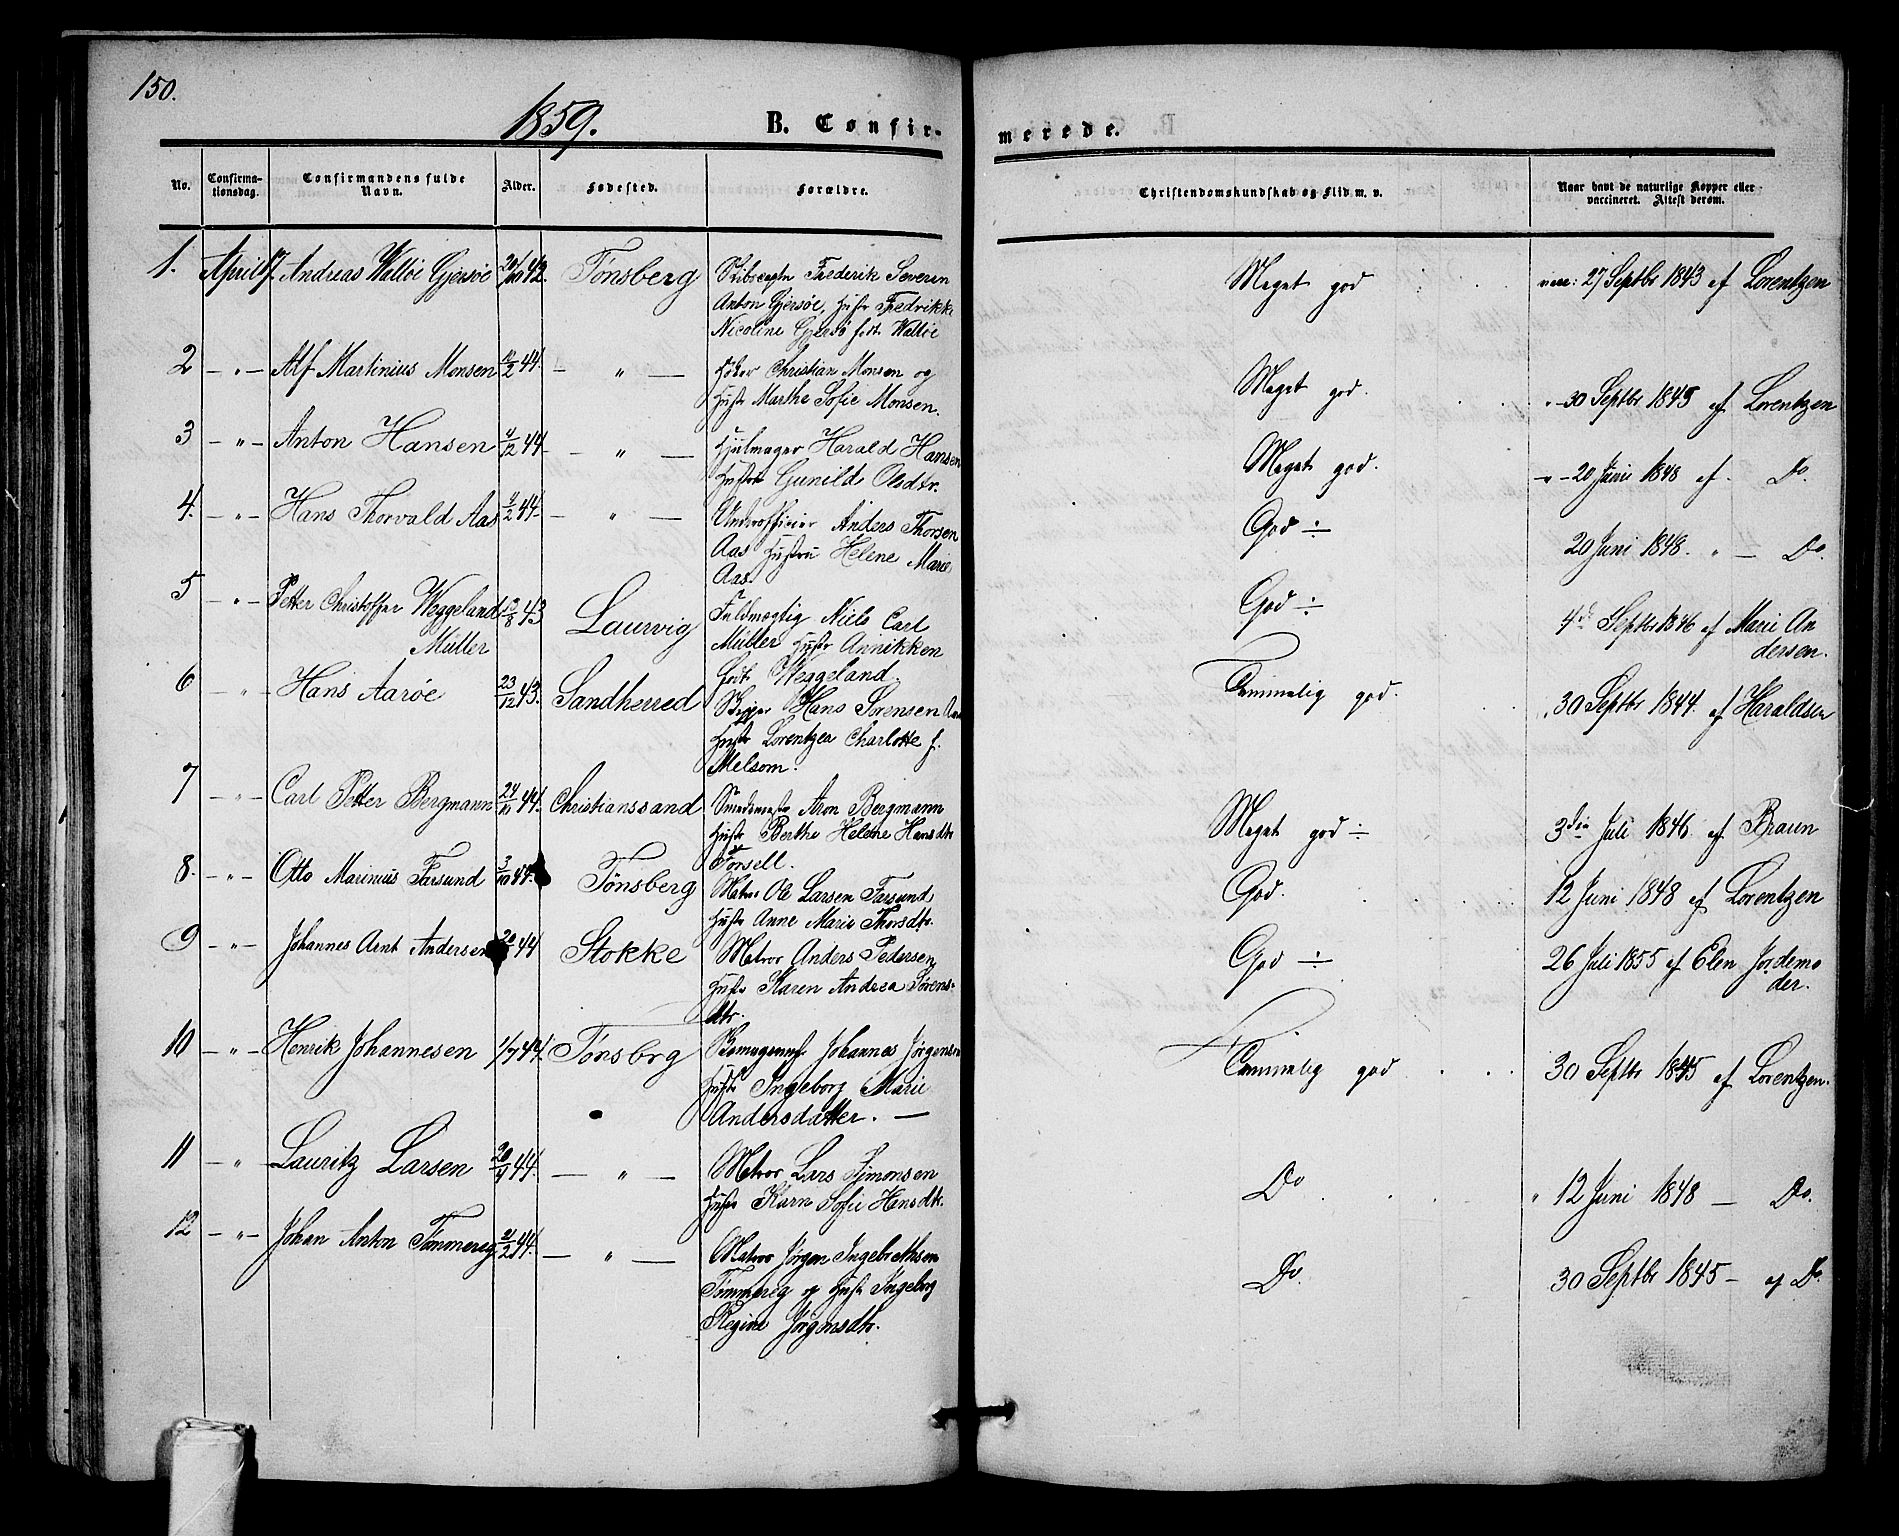 150.
1859.
B. Confir-
merede.
No.
Confirma-
tionsdag.
Confirmandens fulde
Navn.
Alder.
Fødested.
Forældre.
Christendomskundskab og Flid m. v.
Naar havt de naturlige Kopper eller
vaccineret. Attest derom.
1. April 17. Andreas Walløe Gjersøe 42. Tønsberg Frederik Severin Meget god 27 Septbr 1843 af Lorentzen
Anton Gjersøe, Hustr Fredrikke
Nicoline Gjersö født Walløe
2 — " — Alf Martinius Monsen 44. — " — Christian Monsen og Meget god. 30 Septbr 1845 af Lorentzen
Hustr Marthe Sofie Monsen.
3 — " — Anton Hansen 4/12 44 — " — Hjulmager Harald Hansen Meget god. 20 Juni 1848 af. Do.
Hustru Gunild Olsdtr.
4. — " — Hans Thorvald Aas 44. — " — Underofficier Anders Thorsen God ÷ 20 Juni 1848. " — Do.
Aas Hustru Helene Marie
Aas.
5 — " — Petter Christoffer Weggeland 43 Laurvig Fuldmægtig Niels Carl God ÷ 4de Septbr 1846 af Marie An
Müller Müller Hustr Annikken dersen.
født Weggeland.
6 — " — Hans Aarøe 23/12 43. Sandherred Skipper Hans Sørensen Temmelig god. 30 Septbr 1844. af Haraldsen
Hustr Lorentzea Charlotte f.
Melsom.
7 — " — Carl Petter Bergmann 44. Christianssand Aron Bergmann Meget god ÷ 3die Juli 1846. af Braun
Hustr Berthe Helene Hansdtr
Torsell.
8. — " — Otto Marinius Farsund 3/10 44. Tønsberg Matros Ole Larsen Farsund God. 12 Juni 1848 af Lorentzen
Hustr Anne Marie Thorsdtr.
9 — " — Johannes Arnt Andersen 44 Stokke Matros Anders Pedersen God ÷ 26 Juli 1855 af Elen Jordemo
Hustr Karen Andrea Sørens- der.
dtr.
10 — " — Henrik Johannesen 1/7 44. Tønsbrg Johannes Jørgensen Temmelig god 30 Septbr 1845 af Lorentzen.
Hustr Ingeborg Marie
Andersdatter. —
11 — " — Lauritz Larsen 44. — " — Matros Lars Simonsen Do " 12 Juni 1848 — Do.
Hustr Karn Sofie Hensdtr.
12 — " — Johan Anton Tømmereg 44. — " — Matros Jørgen Ingebrethsen Do. 30 Septbr 1845 — af Do.
Tømmereg og Hustr Ingeborg
Regine Jörgensdtr.